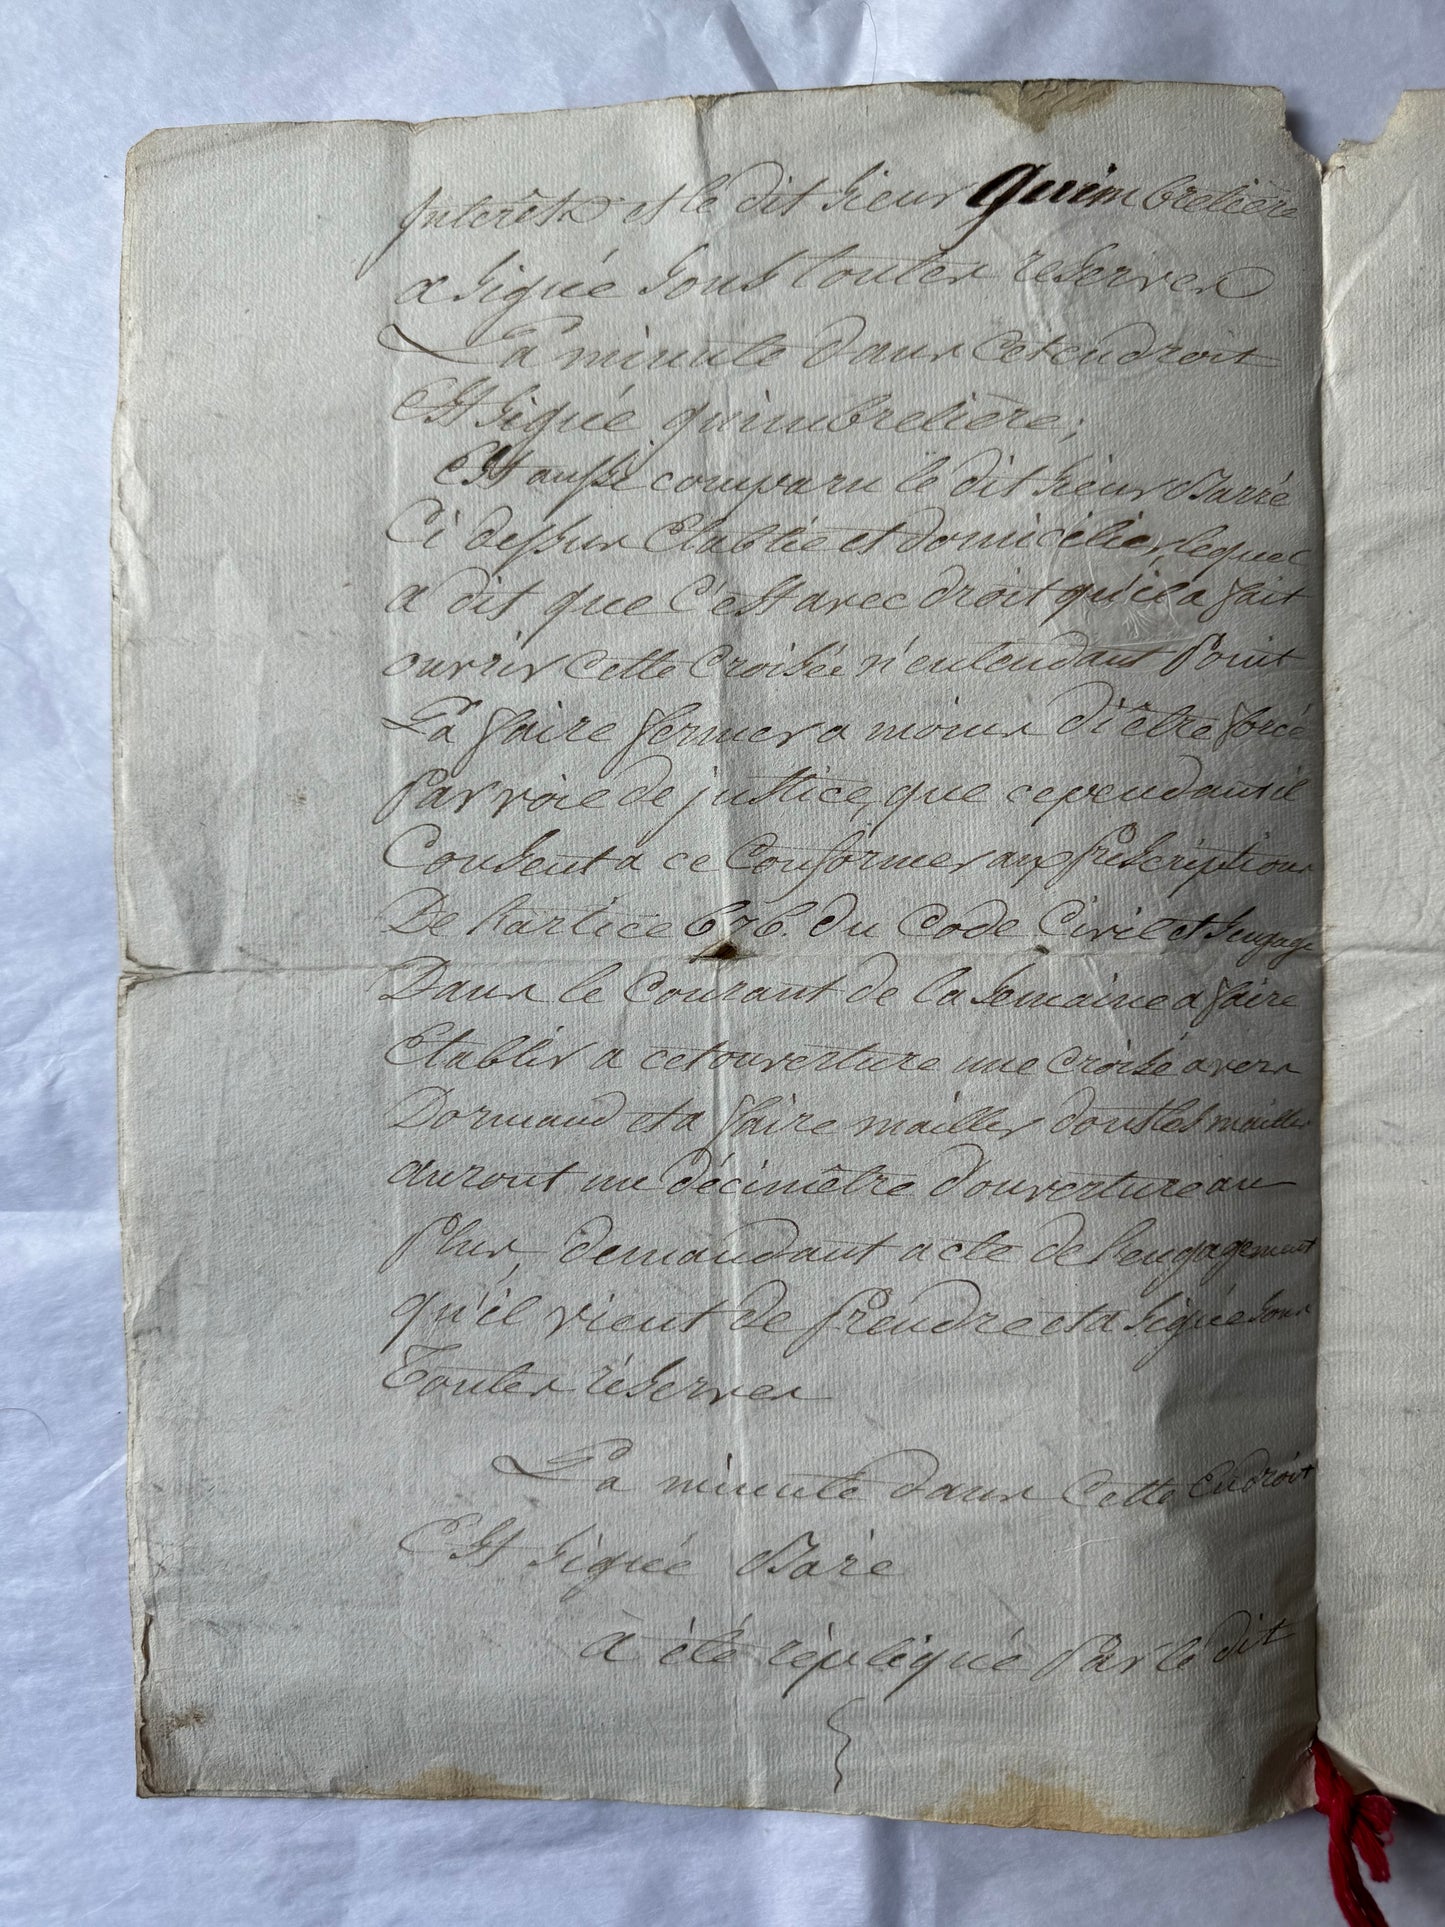 Interêts et le dit sieur Quimbretière
a signé sous toutes reserves
La minute dans cet endroit
Est signée quimbretière;
Est aussi comparu le dit sieur Barré
Ci dessus Etablie et domicilié, lequel
a dit que c'est avec droit qu'il a fait
ouvrir cette croisée n'entendant Point
La faire fermer a moins d'être forcé
Par voie de justice, que cependant il
Consent a ce Conformer aux Prescriptions
De L'article 676. du Code Civil et s'engage
Dans le Courant de la semaine a faire
Etablir a cet ouverture une Croisé a vers
Dormand et a faire mailler dont les mailles
auront un décimêtre d'ouverture au
Plus, demandant acte de l'engagement
qu'il vient de Prendre et a signé sous
Toutes réserves
La minute dans Cette Endroit
Est signée Baré
à été répliqué Par le dit